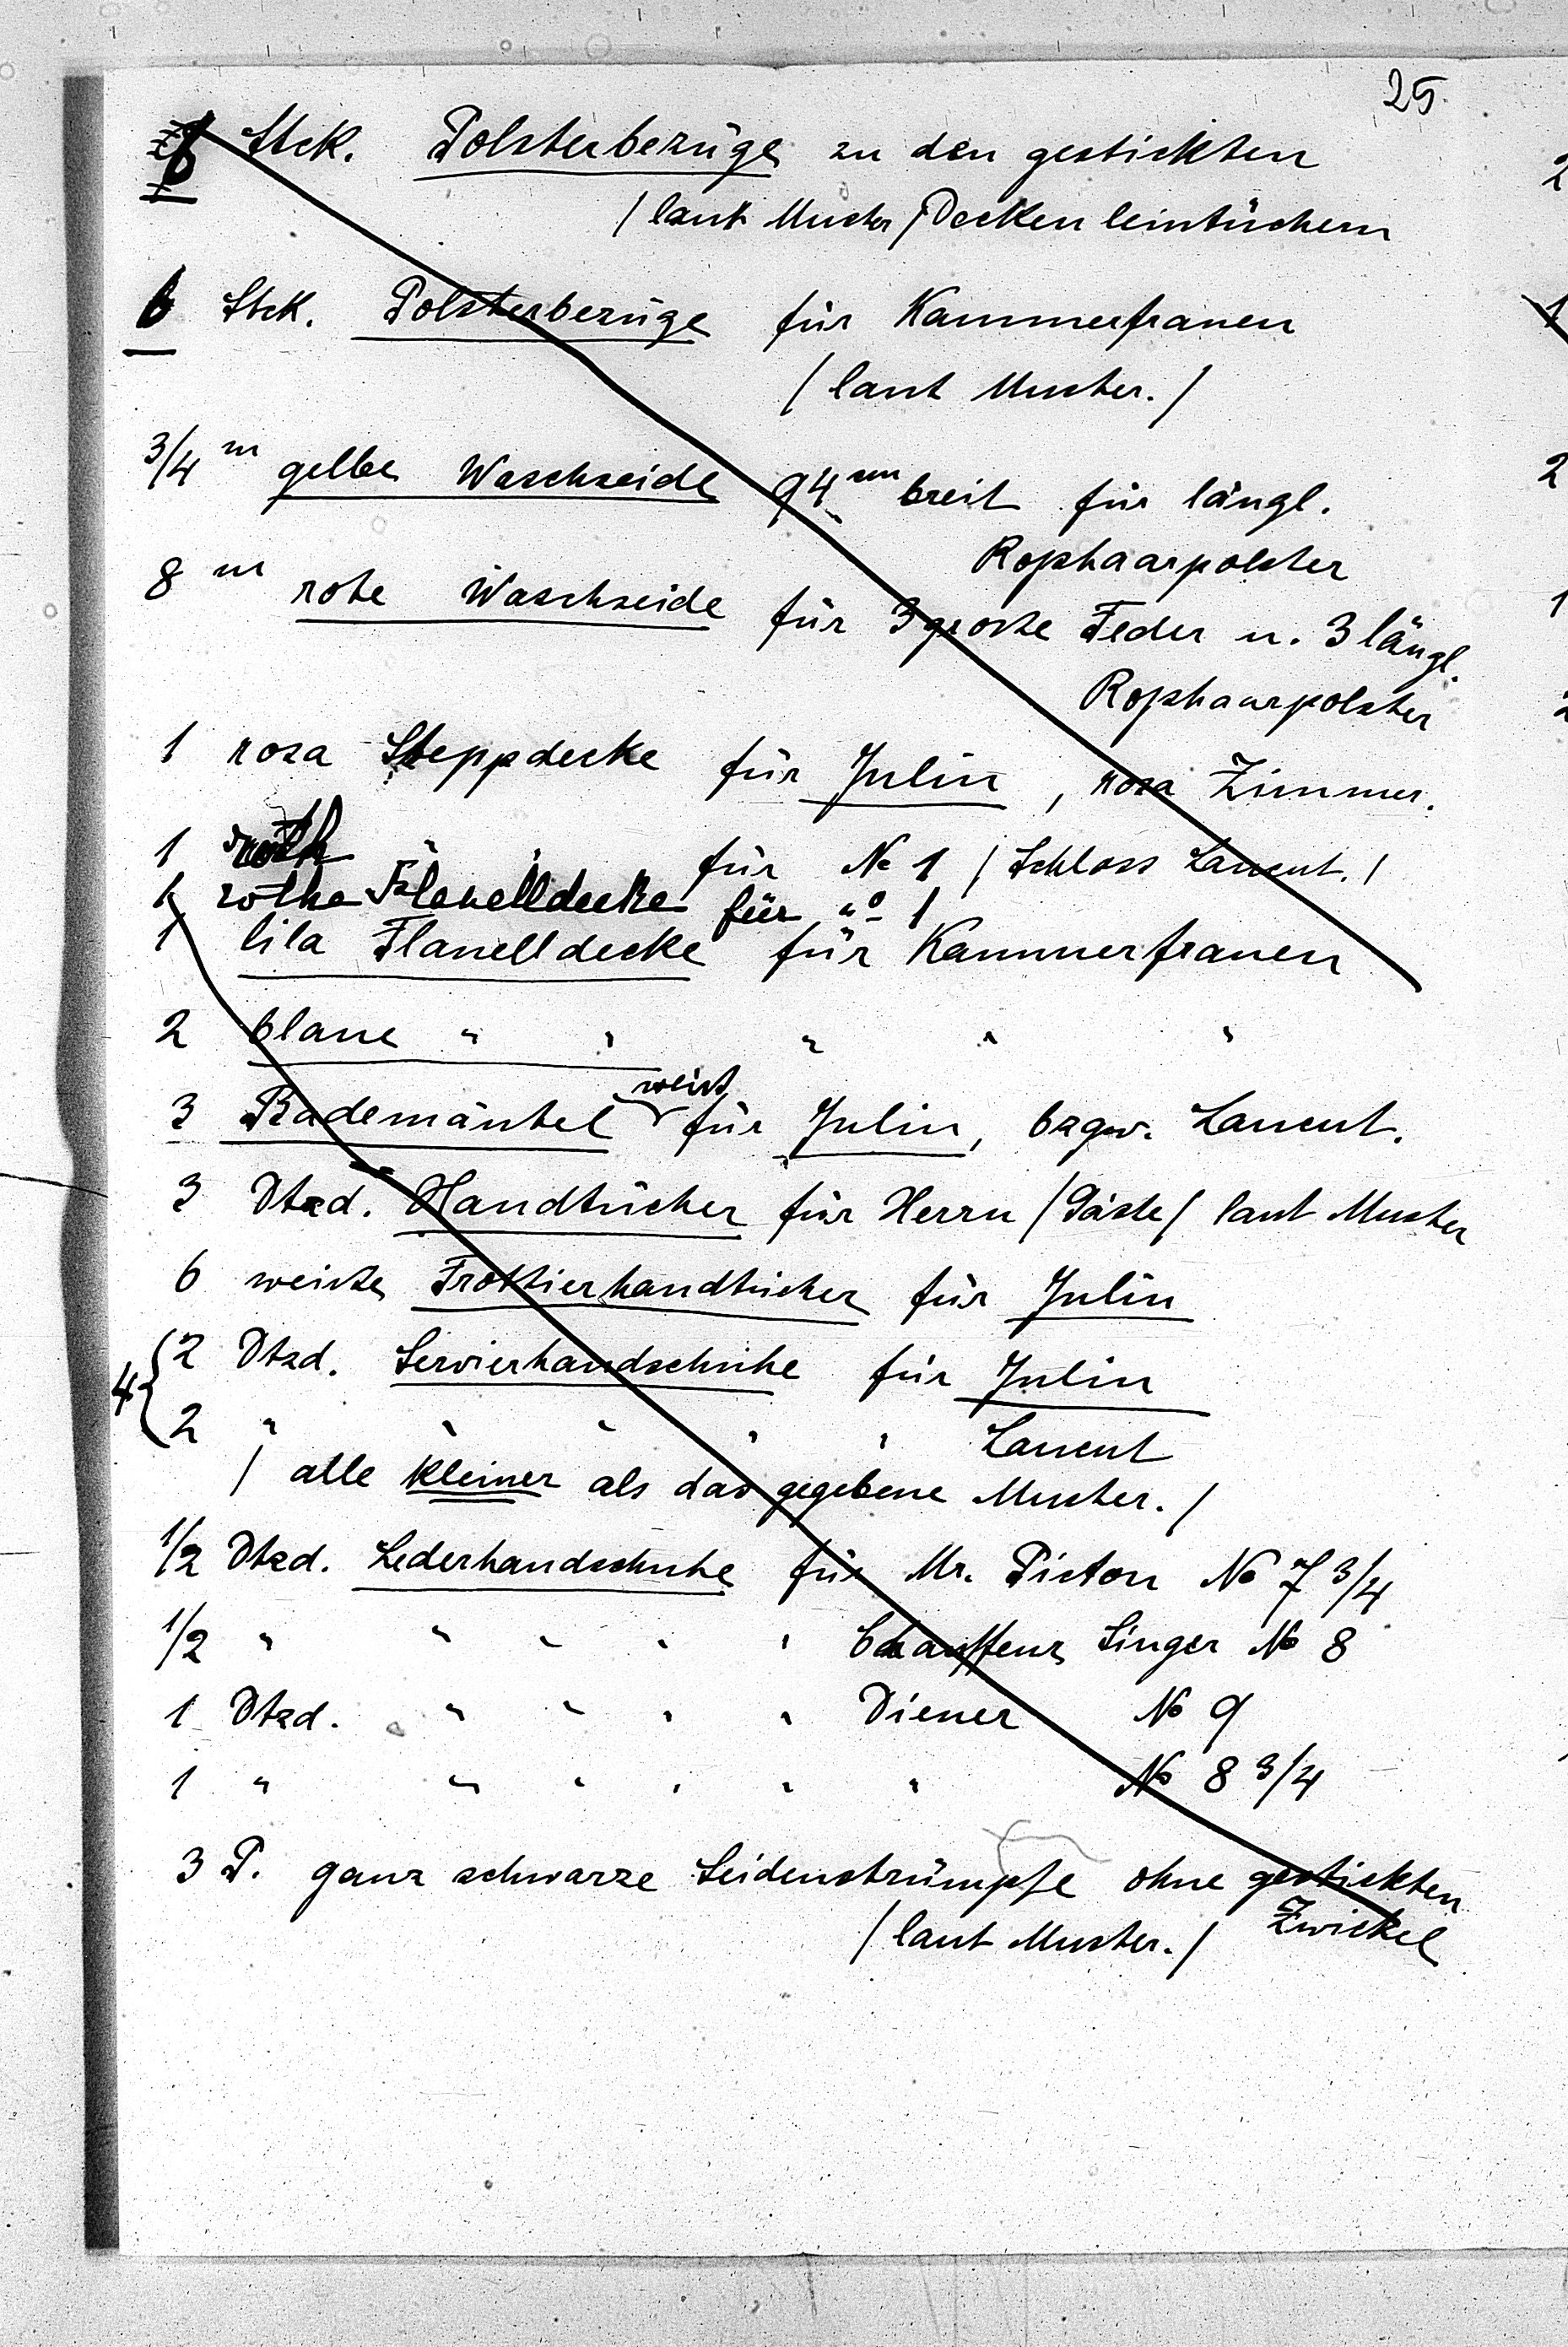 25.
6 Stck. Polsterbezüge zu den gestickten
/ laut Muster / Deckenleintüchern
6 Stck. Polsterbezüge für Kammerfrauen
/ laut Muster. /
3/4 m gelbe Waschseide 94 cm breit für längl.
Roßhaarpolster
8 m rote Waschseide für 3 große Feder u. 3 längl.
Roßhaarpolster
1 rosa Steppdecke für Julin, rosa Zimmer.
1 " " für No 1 / Schloss Lancut. /
1 rothe Flanelldecke für No 1
1 lila Flanelldecke für Kammerfrauen
2 blaue " " " " "
3 Bademäntel weiß für Julin, bzgw. Lancut.
3 Dtzd. Handtücher für Herrn / Gäste / laut Muster
6 weiße Frottierhandtücher für Julin
4 { 2 Dtzd. Servierhandschuhe für Julin
2 " " " " " Lancut
/ alle kleiner als das gegebene Muster. /
1/2 Dtzd. Lederhandschuhe für Mr. Picton No 7 3/4
1/2 " " " " " Chauffeur Singer No 8
1 Dtzd. " " " " Diener No 9
1 " " " " " " No 8 3/4
3 P. ganz schwarze Seidenstrümpfe ohne gestickten
/ laut Muster. / Zwickel